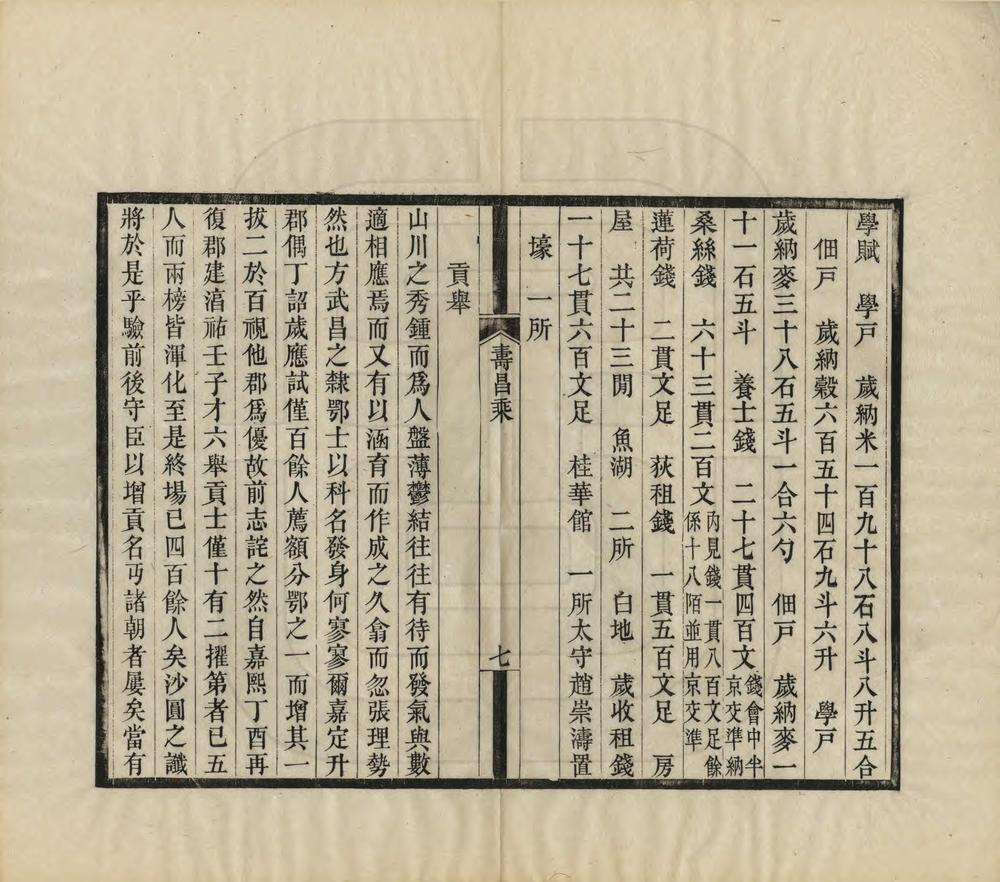 學賦　學戶　歲納米一百九十八石八斗八升五合
佃戶　歲納穀六百五十四石九斗六升　學戶
歲納麥三十八石五斗一合六勺　佃戶　歲納麥一
十一石五斗　養士錢　二十七貫四百文錢會中半京交準納
桑絲錢　六十三貫二百文內見錢一貫八百文足餘係十八陌並用京交準
蓮荷錢　二貫文足　荻租錢　一貫五百文足　房
屋　共二十三閒　魚湖　二所　白地　歲收租錢
一十七貫六百文足　桂華館　一所太守趙崇濤置
壕　一所
壽昌乘
七
貢舉
山川之秀鍾而爲人盤薄鬱結往往有待而發氣與數
適相應焉而又有以涵育而作成之久翕而忽張理勢
然也方武昌之隸鄂士以科名發身何寥寥爾嘉定升
郡偶丁詔歲應試僅百餘人薦額分鄂之一而增其一
拔二於百視他郡爲優故前志詫之然自嘉熙丁酉再
復郡建湻祐壬子才六舉貢士僅十有二擢第者已五
人而兩榜皆渾化至是終場已四百餘人矣沙圓之讖
將於是乎驗前後守臣以增貢名丐諸朝者屢矣當有